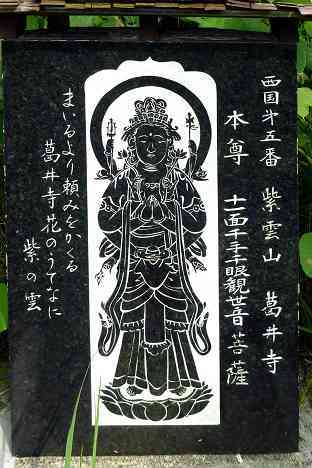 西国第五番 紫雲山 葛井寺
本尊 十一面千手千眼観世音菩薩
まいるより頼みをかくる
葛井寺花のうてなに
紫の雲